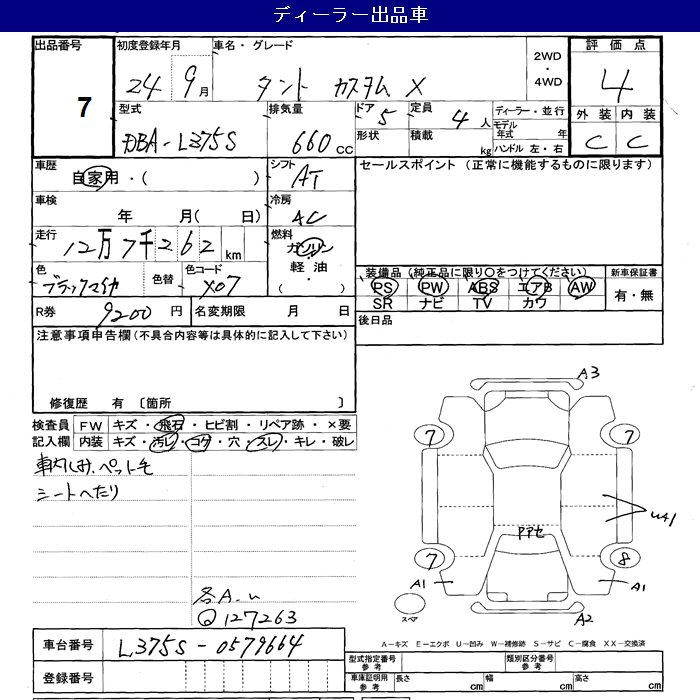 ディーラー出品車
出品番号
7
初度登録年月
24 9月
車名・グレード
タント カスタム X
2WD
・
4WD
評価点
4
外装 内装
C C
型式
DBA-L375S
排気量
660cc
ドア 5
定員 4人
ディーラー・並行
形状
積載 kg
モデル年式 年
ハンドル 左・右
車歴
自家用・( )
シフト
AT
セールスポイント (正常に機能するものに限ります)
車検
年 月( 日)
冷房
AC
走行
12万7千262km
燃料
ガソリン
軽油
( )
色
ブラックマイカ
色替
色コード
X07
装備品 (純正品に限り○をつけてください)
PS PW ABS エアB AW
SR ナビ TV カワ
新車保証書
有・無
R券 9200円
名変期限 月 日
後日品
注意事項申告欄(不具合内容等は具体的に記入して下さい)
修復歴 有 〔箇所 〕
検査員記入欄
FW キズ・飛石・ヒビ割・リペア跡・×要
内装 キズ・汚レ・コゲ・穴・スレ・キレ・破レ
車内しみ、ペット毛
シートへたり
各A.u
Q127263
A3
7 7
U41
Pアセ
7 8
A1 A1
スペア
A2
A-キズ E-エクボ U-凹み W-補修跡 S-サビ C-腐食 XX-交換済
車台番号
L375S-0579664
登録番号
型式指定番号 参考
類別区分番号 参考
車庫証明用 参考
長さ cm
幅 cm
高さ cm